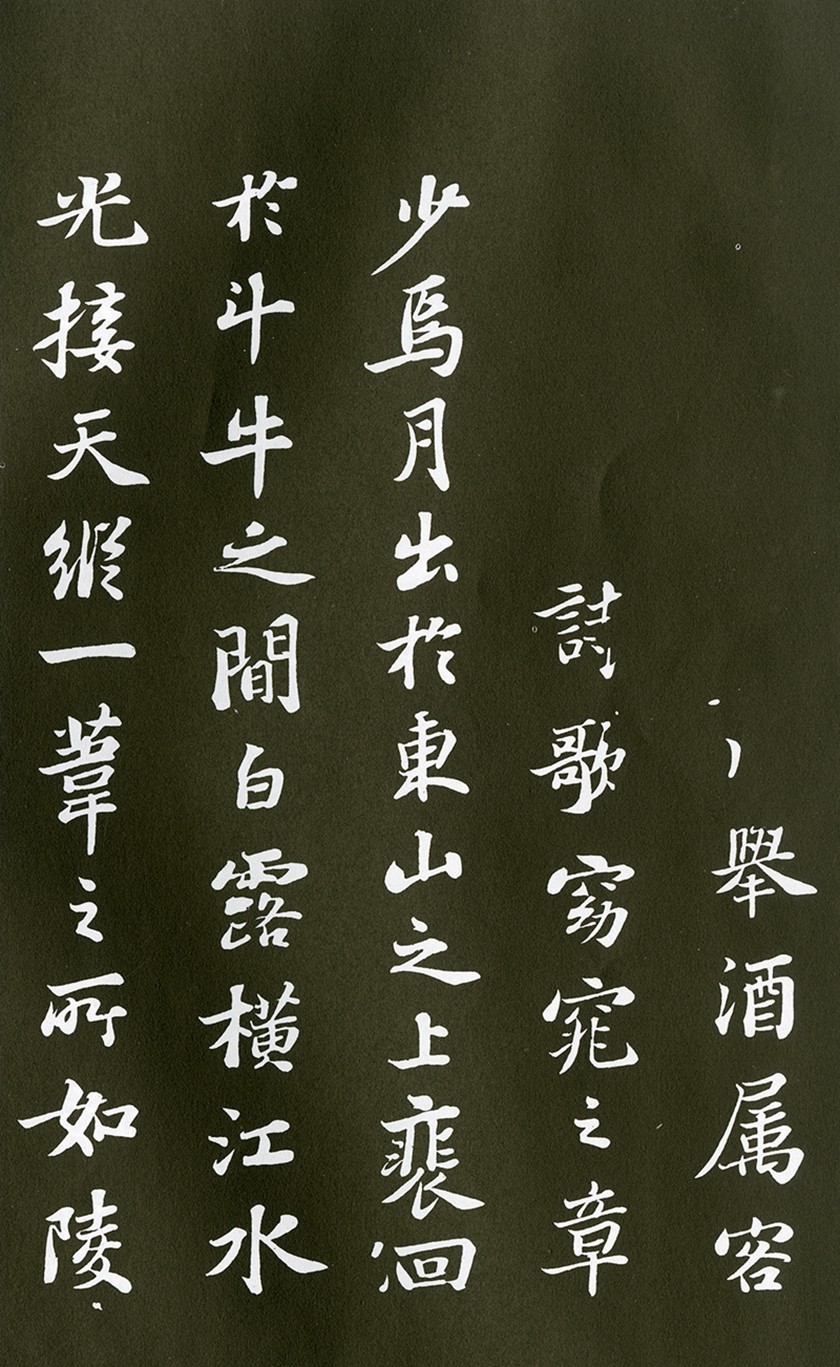 舉酒属客
詩歌窈窕之章
少焉月出於東山之上裴洄
於斗牛之間白露横江水
光接天縱一葦之所如陵